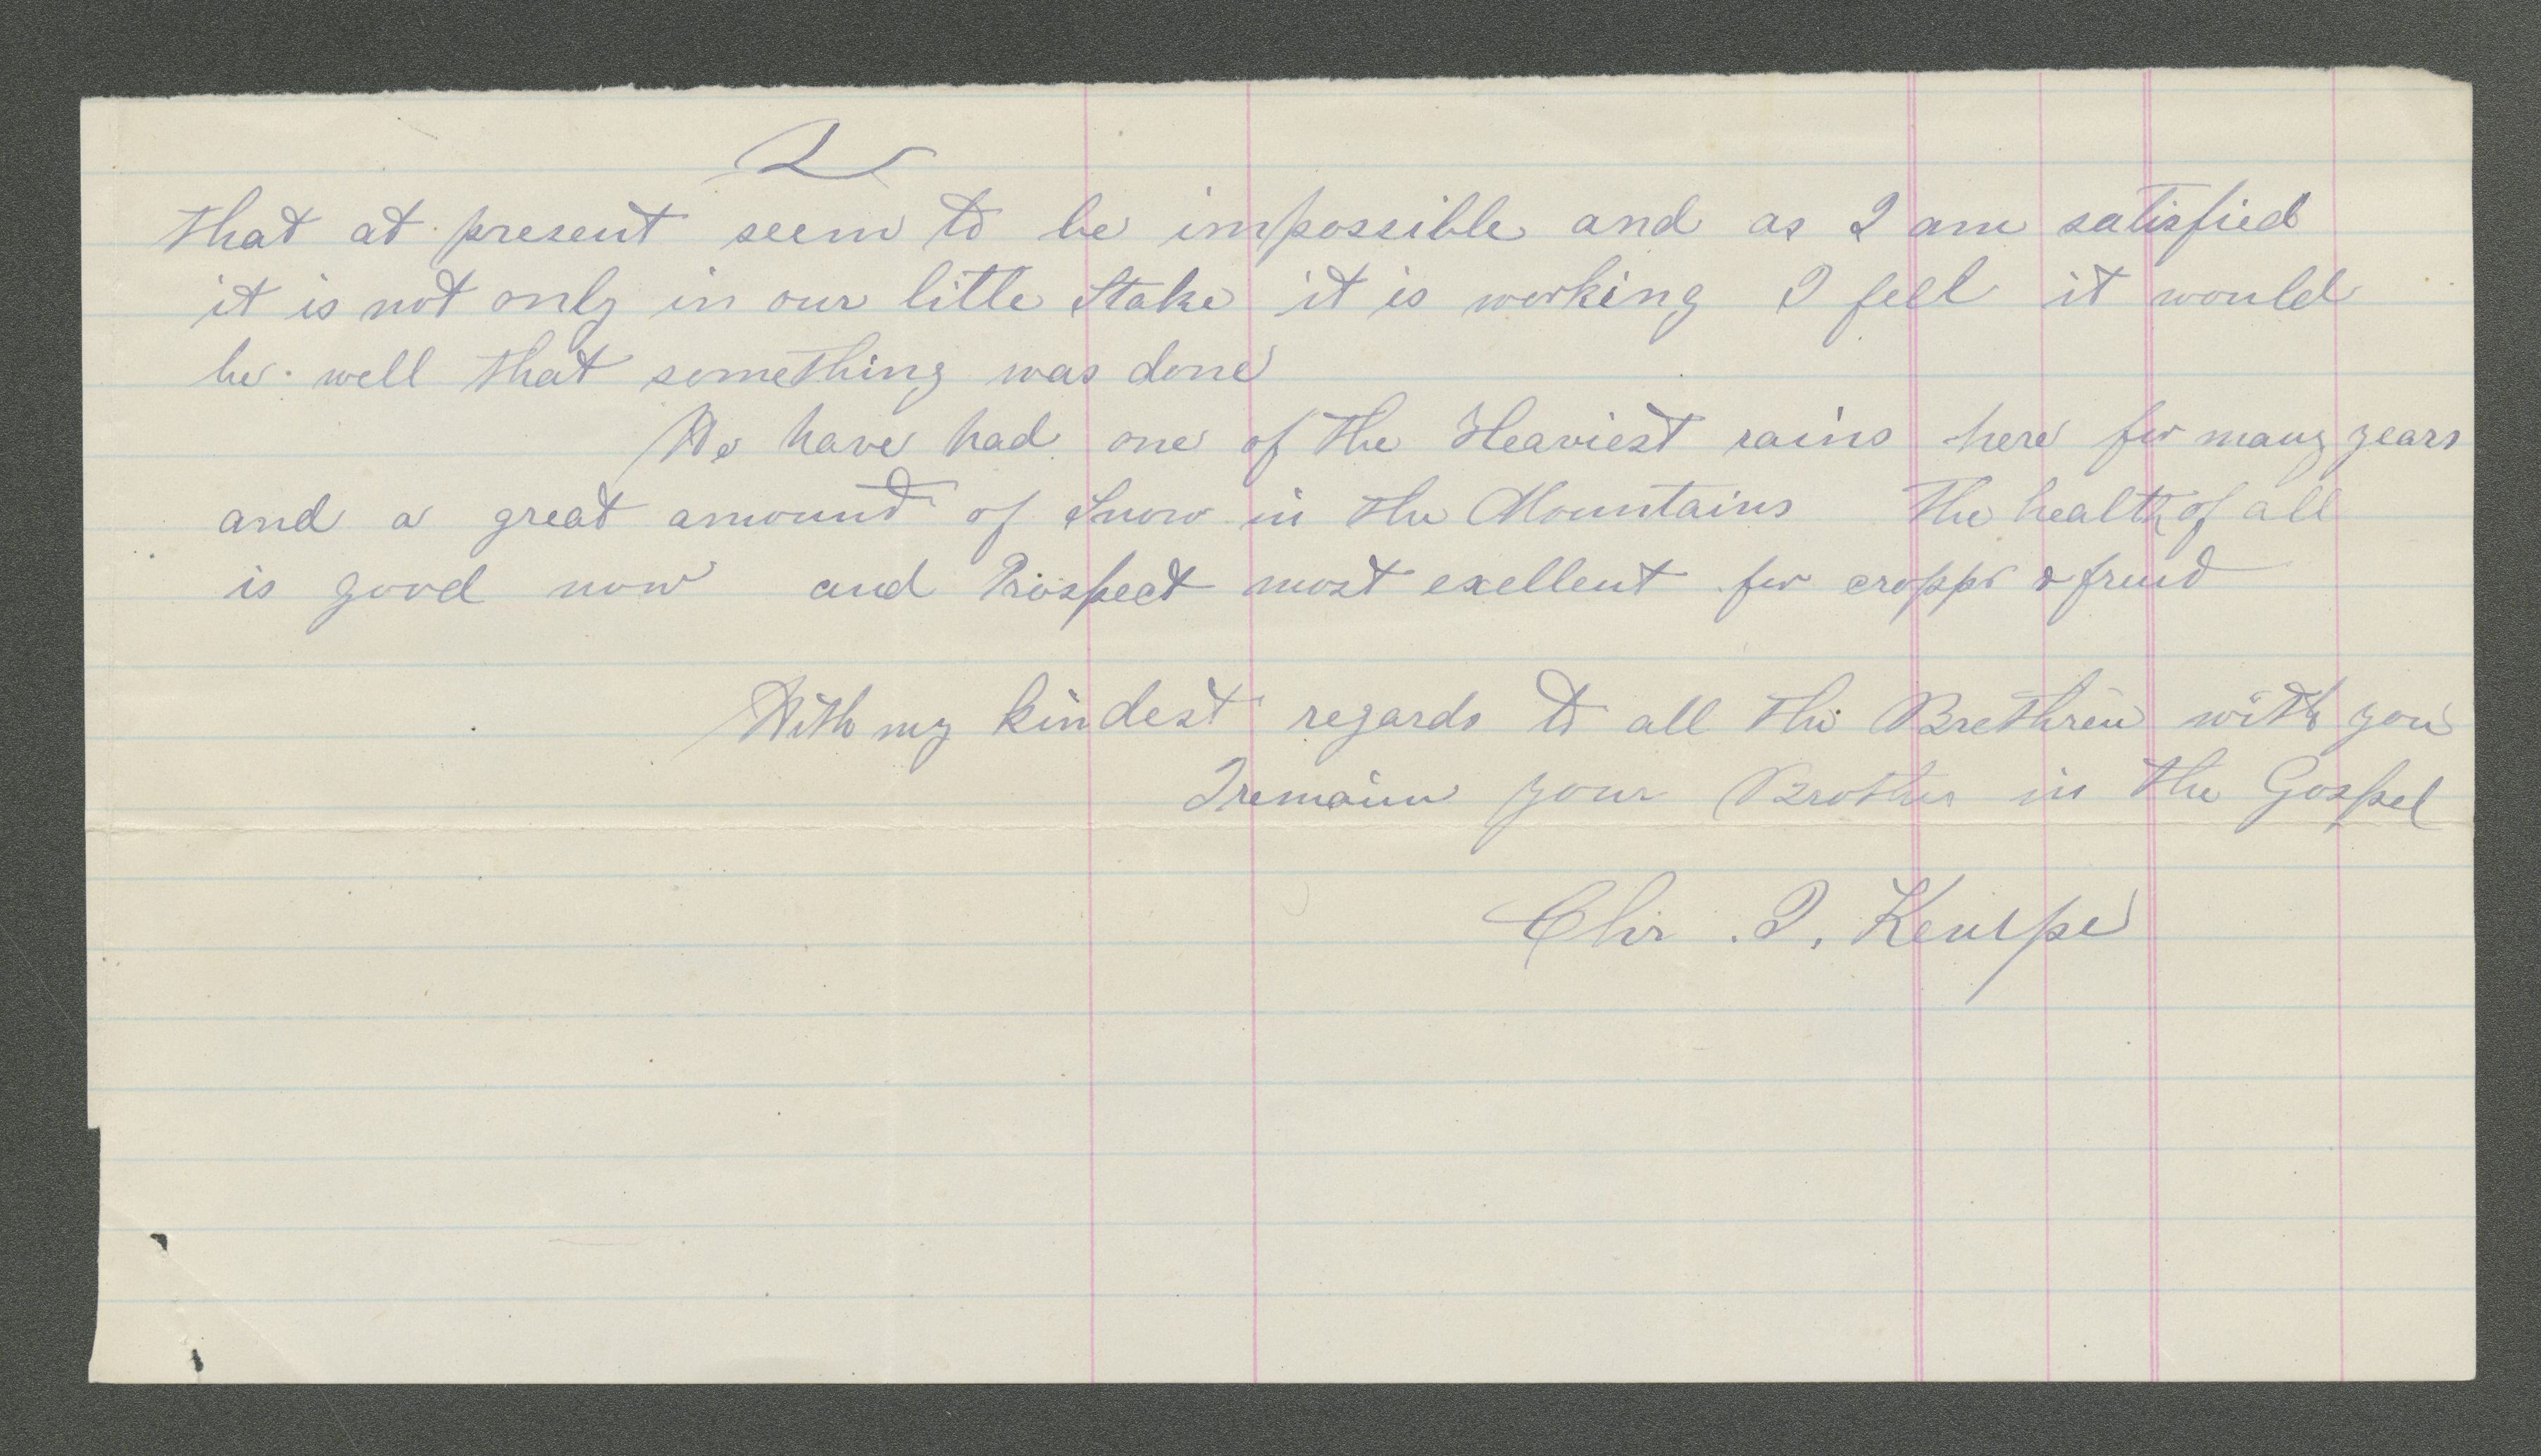 2
that at present seem to be impossible and as I am satisfied
it is not only in our little Stake it is working I feel it would
be well that something was done
We have had one of the Heaviest rains here for many years
and a great amount of Snow in the Mountains The health of all
is good now and Prospect most exellent for cropps & fruit
With my kindest regards to all the Brethren with you
I remain your Brother in the Gospel
Chr. I. Kempe